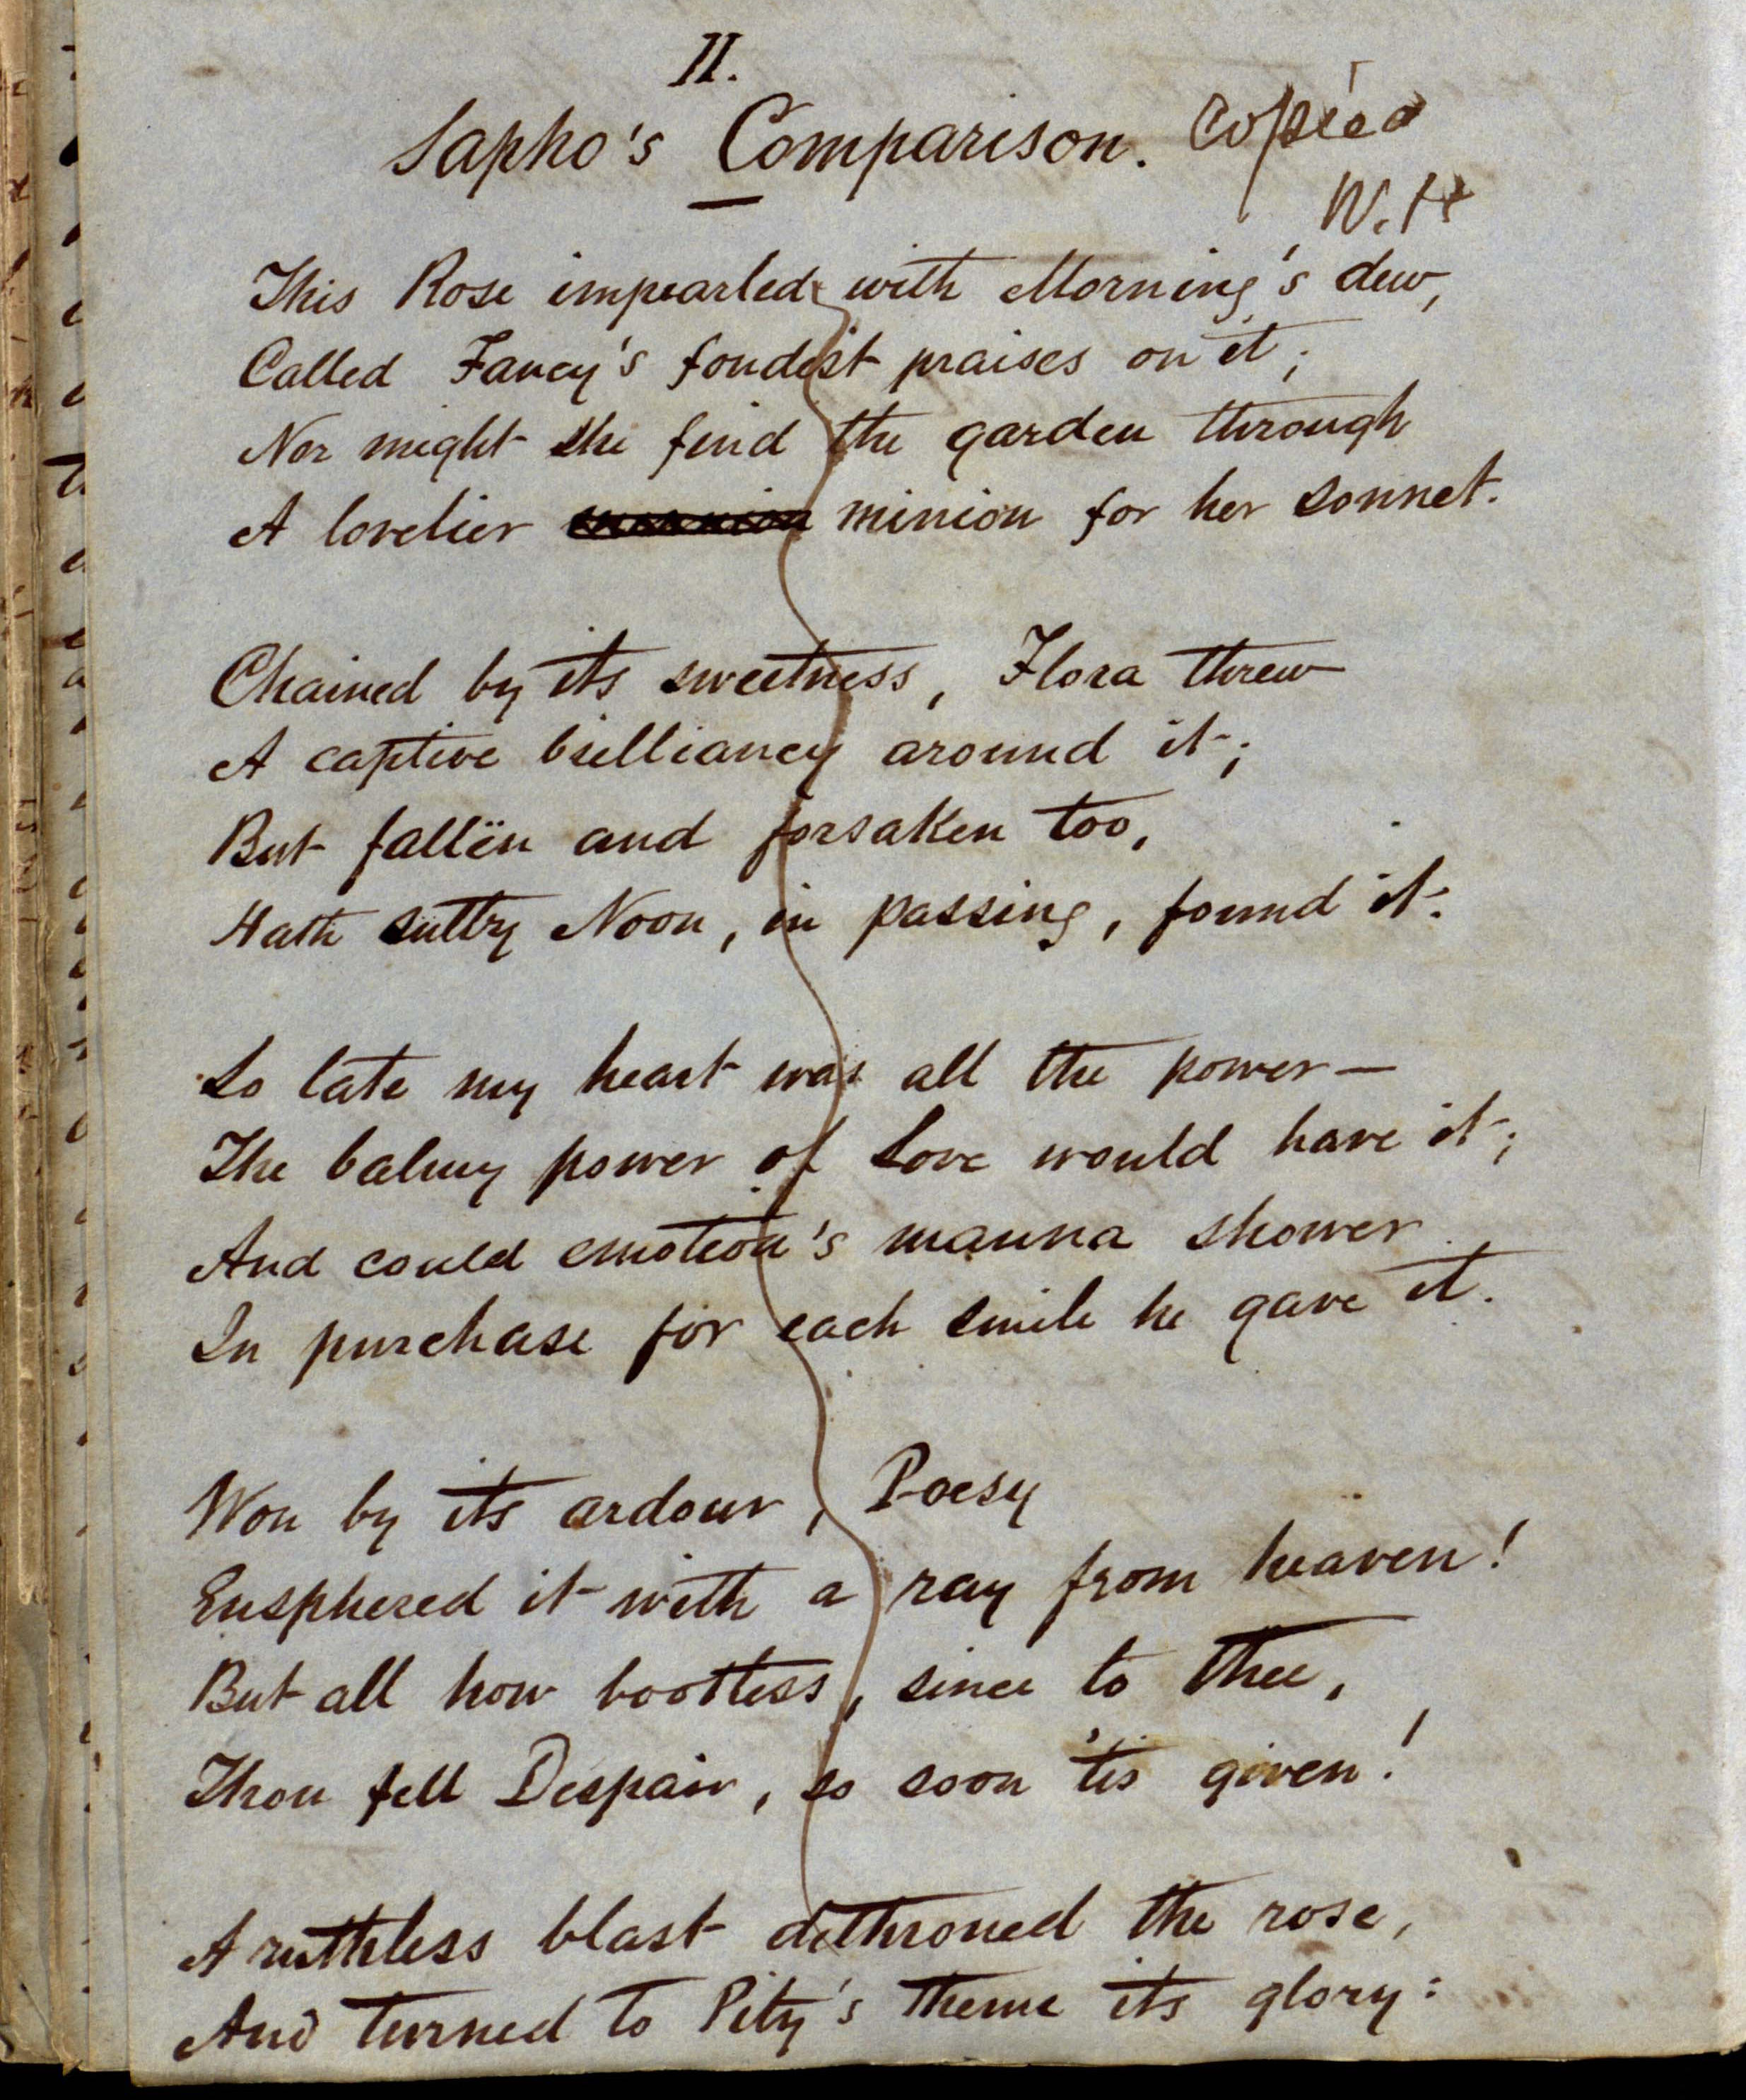 II.
Sapho's Comparison. Copied
W. H
This Rose impearled with Morning's dew,
Called Fancy's fondest praises on it;
Nor might she find the garden through
A lovelier minion for her sonnet.
Chained by its sweetness, Flora threw
A captive brilliancy around it;
But fallën and forsaken too,
Hath sultry Noon, in passing, found it.
So late my heart was all the power—
The balmy power of Love would have it;
And could emotion's manna shower
In purchase for each smile he gave it.
Won by its ardour, Poesy
Ensphered it with a ray from heaven!
But all how bootless, since to thee,
Thou fell Despair, so soon 'tis given!
A ruthless blast dethroned the rose,
And turned to Pity's theme its glory: